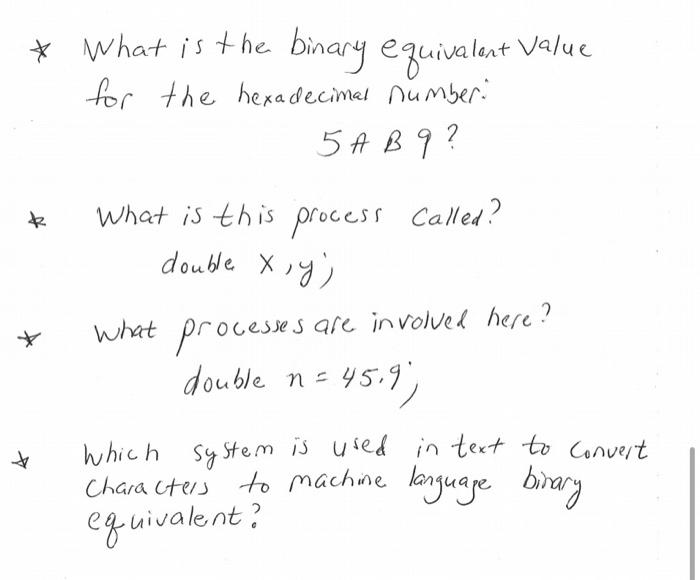 * What is the binary equivalent Value
for the hexadecimal number:
5AB9?
* What is this process Called?
double x,y;
* What processes are involved here?
double n = 45.9;
* Which system is used in text to Convert
Characters to machine language binary
equivalent?